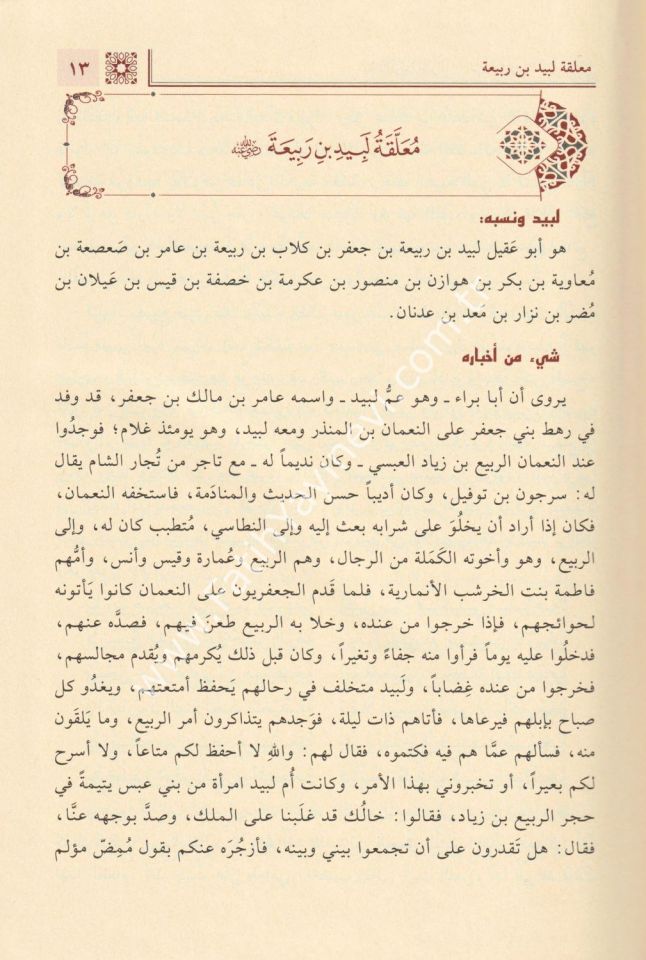 معلقة لبيد بن ربيعة
١٣
مُعَلَّقَةُ لَبِيدِ بْنِ رَبِيعَةَ رضي الله عنه
لبيد ونسبه:
هو أبو عَقيل لبيد بن ربيعة بن جعفر بن كلاب بن ربيعة بن عامر بن صَعصعة بن
مُعاوية بن بكر بن هوازن بن منصور بن عكرمة بن خصفة بن قيس بن عَيلان بن
مُضر بن نزار بن مَعد بن عدنان.
شيء من أخباره
يروى أن أبا براء ـ وهو عمُّ لبيد ـ واسمه عامر بن مالك بن جعفر، قد وفد
في رهط بني جعفر على النعمان بن المنذر ومعه لبيد، وهو يومئذ غلام؛ فوجدُوا
عند النعمان الربيع بن زياد العبسي ـ وكان نديماً له ـ مع تاجر من تُجار الشام يقال
له: سرجون بن توفيل، وكان أديباً حسن الحديث والمنادَمة، فاستخفه النعمان،
فكان إذا أراد أن يخلُوَ على شرابه بعث إليه وإلى النطاسي، مُتطبب كان له، وإلى
الربيع، وهو وأخوته الكَمَلة من الرجال، وهم الربيع وعُمارة وقيس وأنس، وأمُّهم
فاطمة بنت الخرشب الأنمارية، فلما قَدم الجعفريون على النعمان كانوا يَأتونه
لحوائجهم، فإذا خرجوا من عنده، وخلا به الربيع طعنَ فيهم، فصدَّه عنهم،
فدخلُوا عليه يوماً فرأوا منه جفاءً وتغيراً، وكان قبل ذلك يُكرمهم ويُقدم مجالسهم،
فخرجوا من عنده غِضاباً، ولَبيد متخلف في رحالهم يَحفظ أمتعتهم، ويغدُو كل
صباح بإبلهم فيرعاها، فأتاهم ذات ليلة، فوَجدهم يتذاكرون أمر الربيع، وما يَلقَون
منه، فسألهم عمَّا هم فيه فكتموه، فقال لهم: واللهِ لا أحفظ لكم متاعاً، ولا أسرح
لكم بعيراً، أو تخبروني بهذا الأمر، وكانت أُم لبيد امرأة من بني عبس يتيمةً في
حجر الربيع بن زياد، فقالوا: خالُك قد غلَبنا على الملك، وصدَّ بوجهه عنَّا،
فقال: هل تَقدرون على أن تجمعوا بيني وبينه، فأزجُرَه عنكم بقول مُمِضّ مؤلم